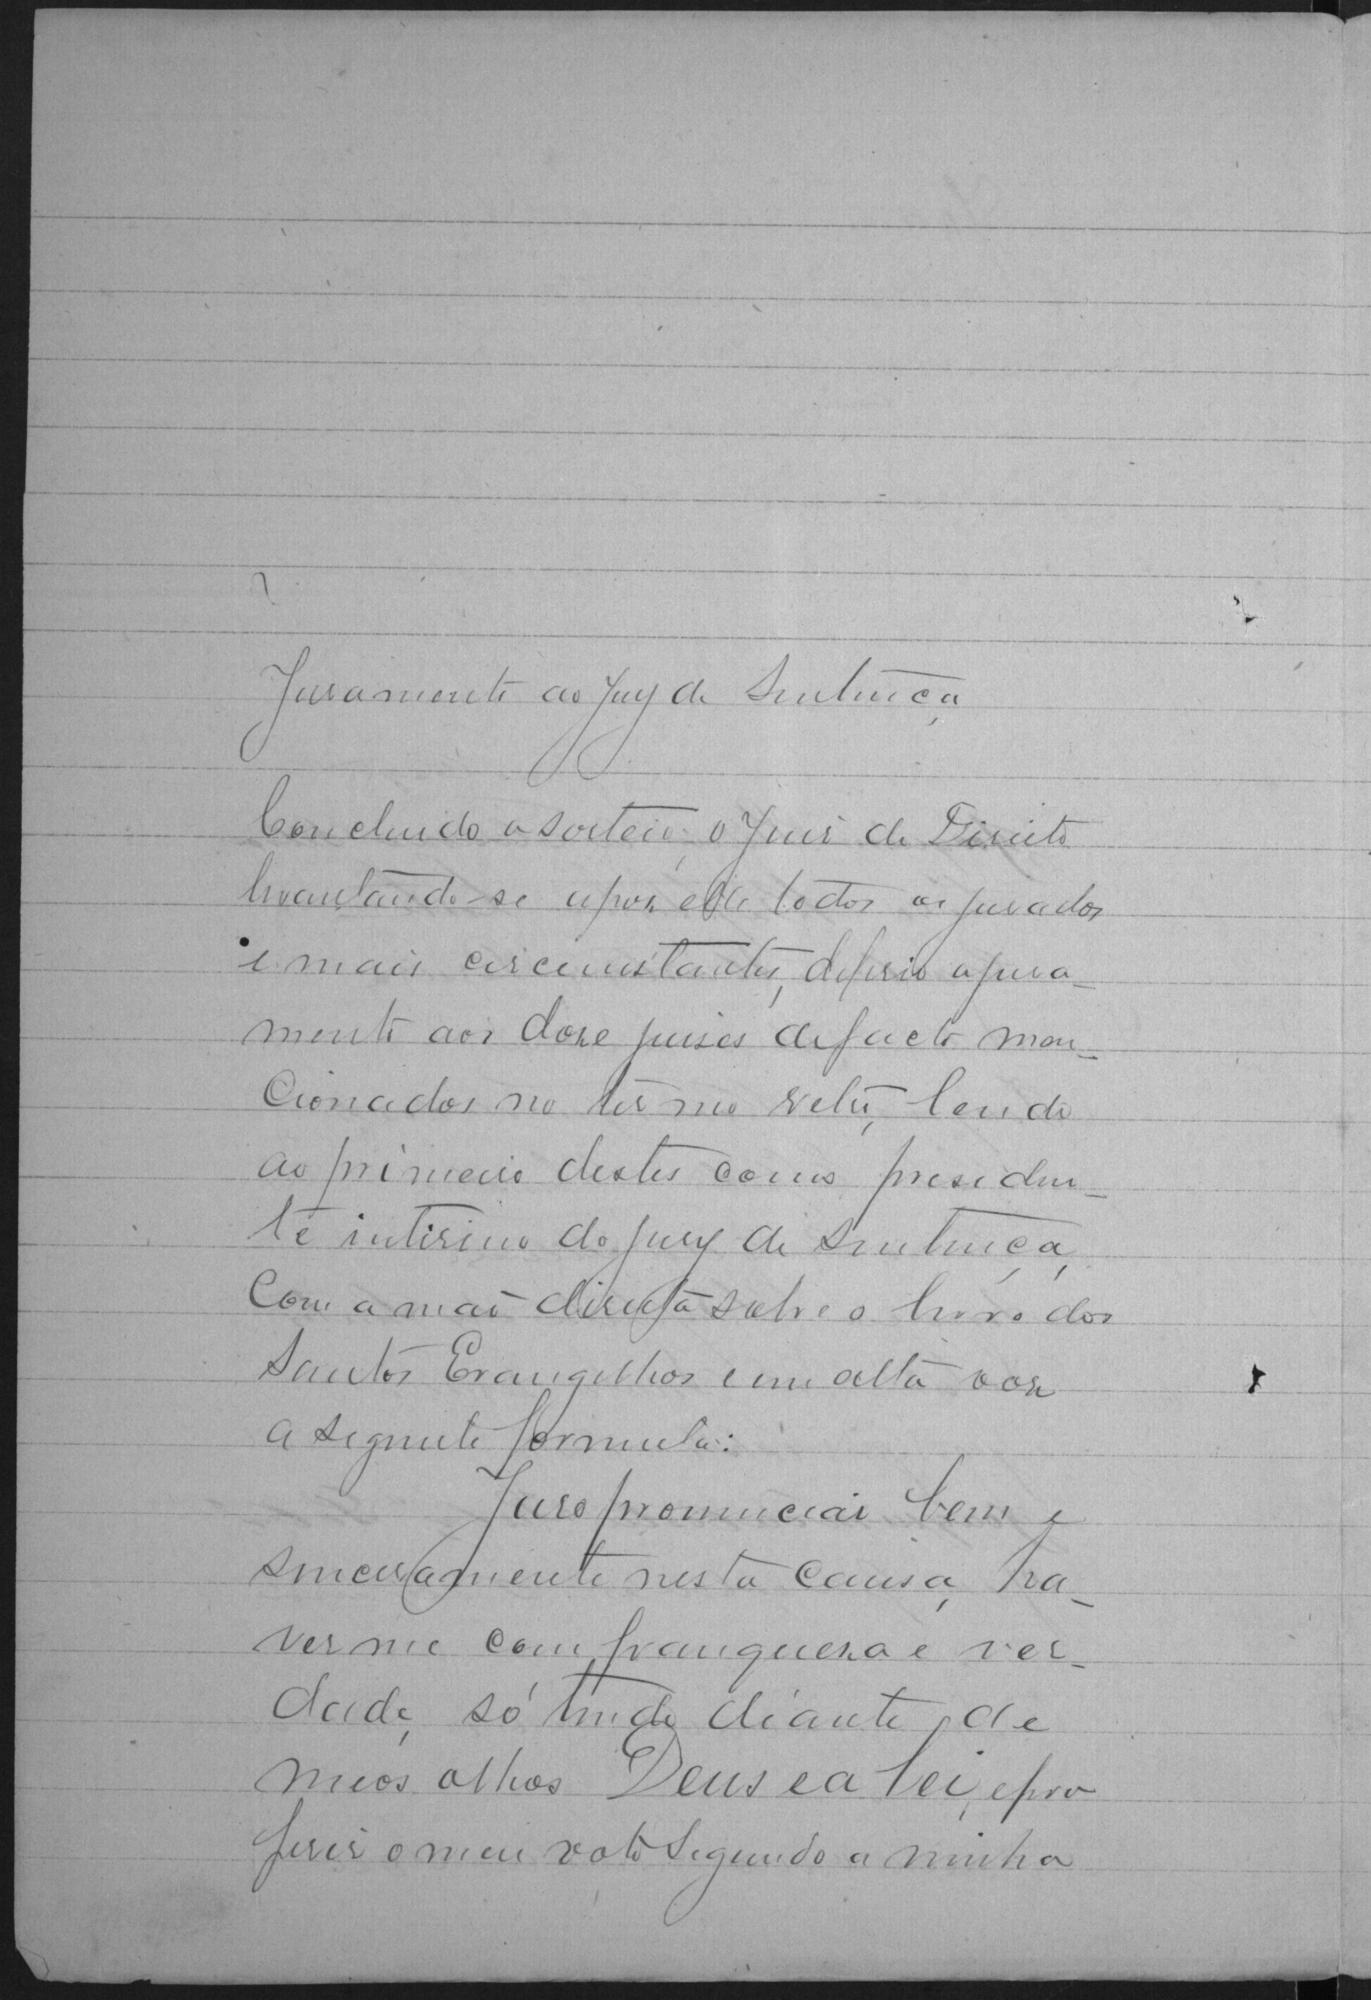 Juramento ao Jury de Sentença
Concluido o sorteio, o Juis de Direito
levantando-se apos elle todos os jurados
e mais circunstantes, deferio o jura-
mento aos doze juises de facto men-
cionados no termo retro, lendo
ao primeiro destes como presiden-
te interino do jury de Sentença,
com a mão direita sobre o livro dos
Santos Evangelhos e em alta voz
a seguinte formula:
Juro pronunciar bem e
sinceramente nesta causa, ha-
ver me com franqueza e ver-
dade, só tendo diante de
meos olhos Deus e a lei, e pro
ferir o meu voto segundo a minha